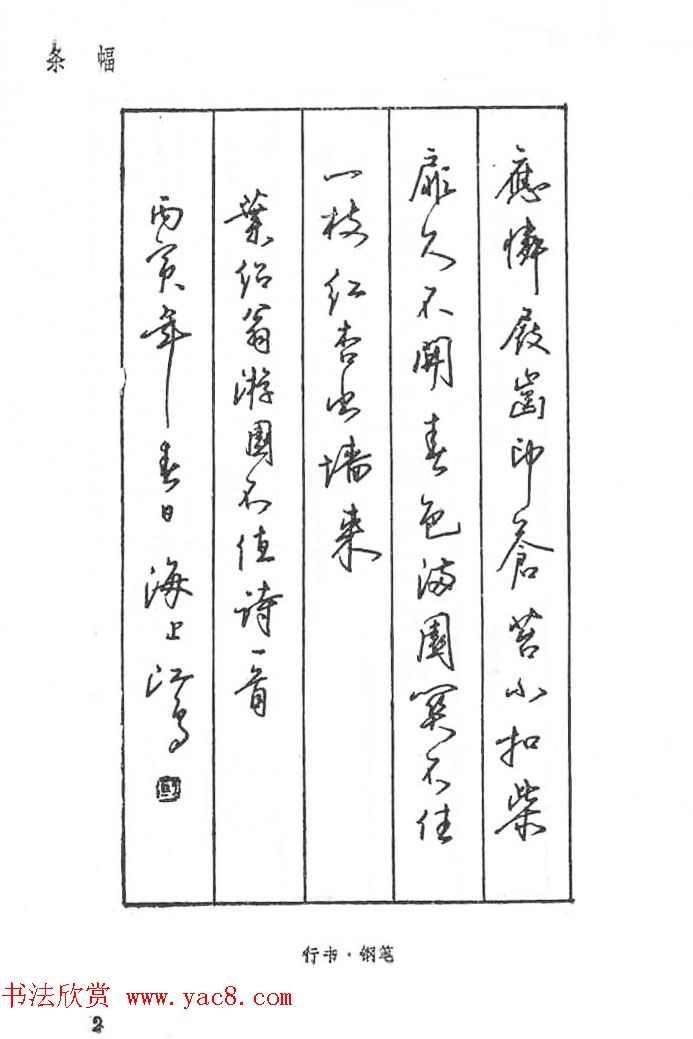 条 幅
應憐屐齒印蒼苔小扣柴
扉久不開春色滿園關不住
一枝红杏出墙來
葉绍翁游園不值詩一首
丙寅年春日 海上江鸟
行书·钢笔
书法欣赏 www.yac8.com
2